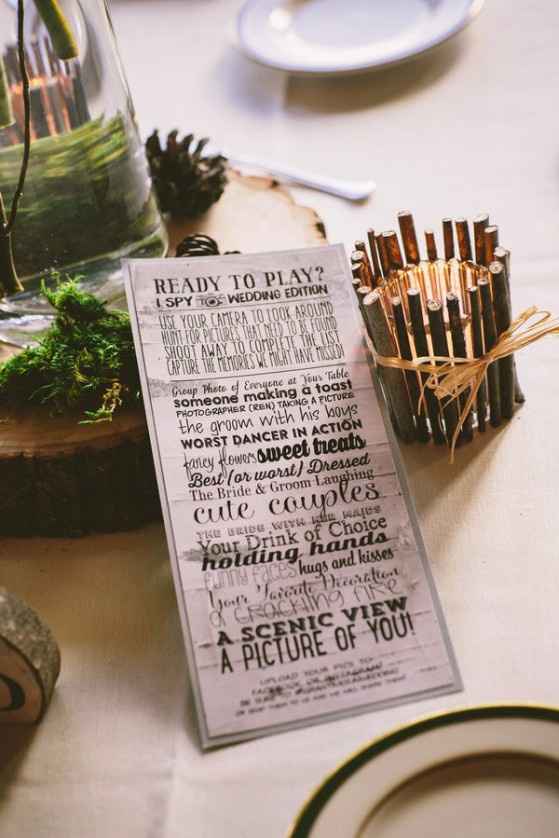 READY TO PLAY?
I SPY WEDDING EDITION
USE YOUR CAMERA TO LOOK AROUND
HUNT FOR PICTURES THAT NEED TO BE FOUND
SHOOT AWAY TO COMPLETE THE LIST
CAPTURE THE MEMORIES WE MIGHT HAVE MISSED!
Group Photo of Everyone at Your Table
someone making a toast
PHOTOGRAPHER (REN) TAKING A PICTURE
the groom with his boys
WORST DANCER IN ACTION
fancy flowers sweet treats
Best (or worst) Dressed
The Bride & Groom Laughing
cute couples
THE BRIDE WITH HER MAIDS
Your Drink of Choice
holding hands
funny faces hugs and kisses
Your Favorite Decoration
a CRACKLING FIRE
A SCENIC VIEW
A PICTURE OF YOU!
UPLOAD YOUR PICS TO
FACEBOOK OR INSTAGRAM!
BE SURE TO
OR SEND THEM TO US